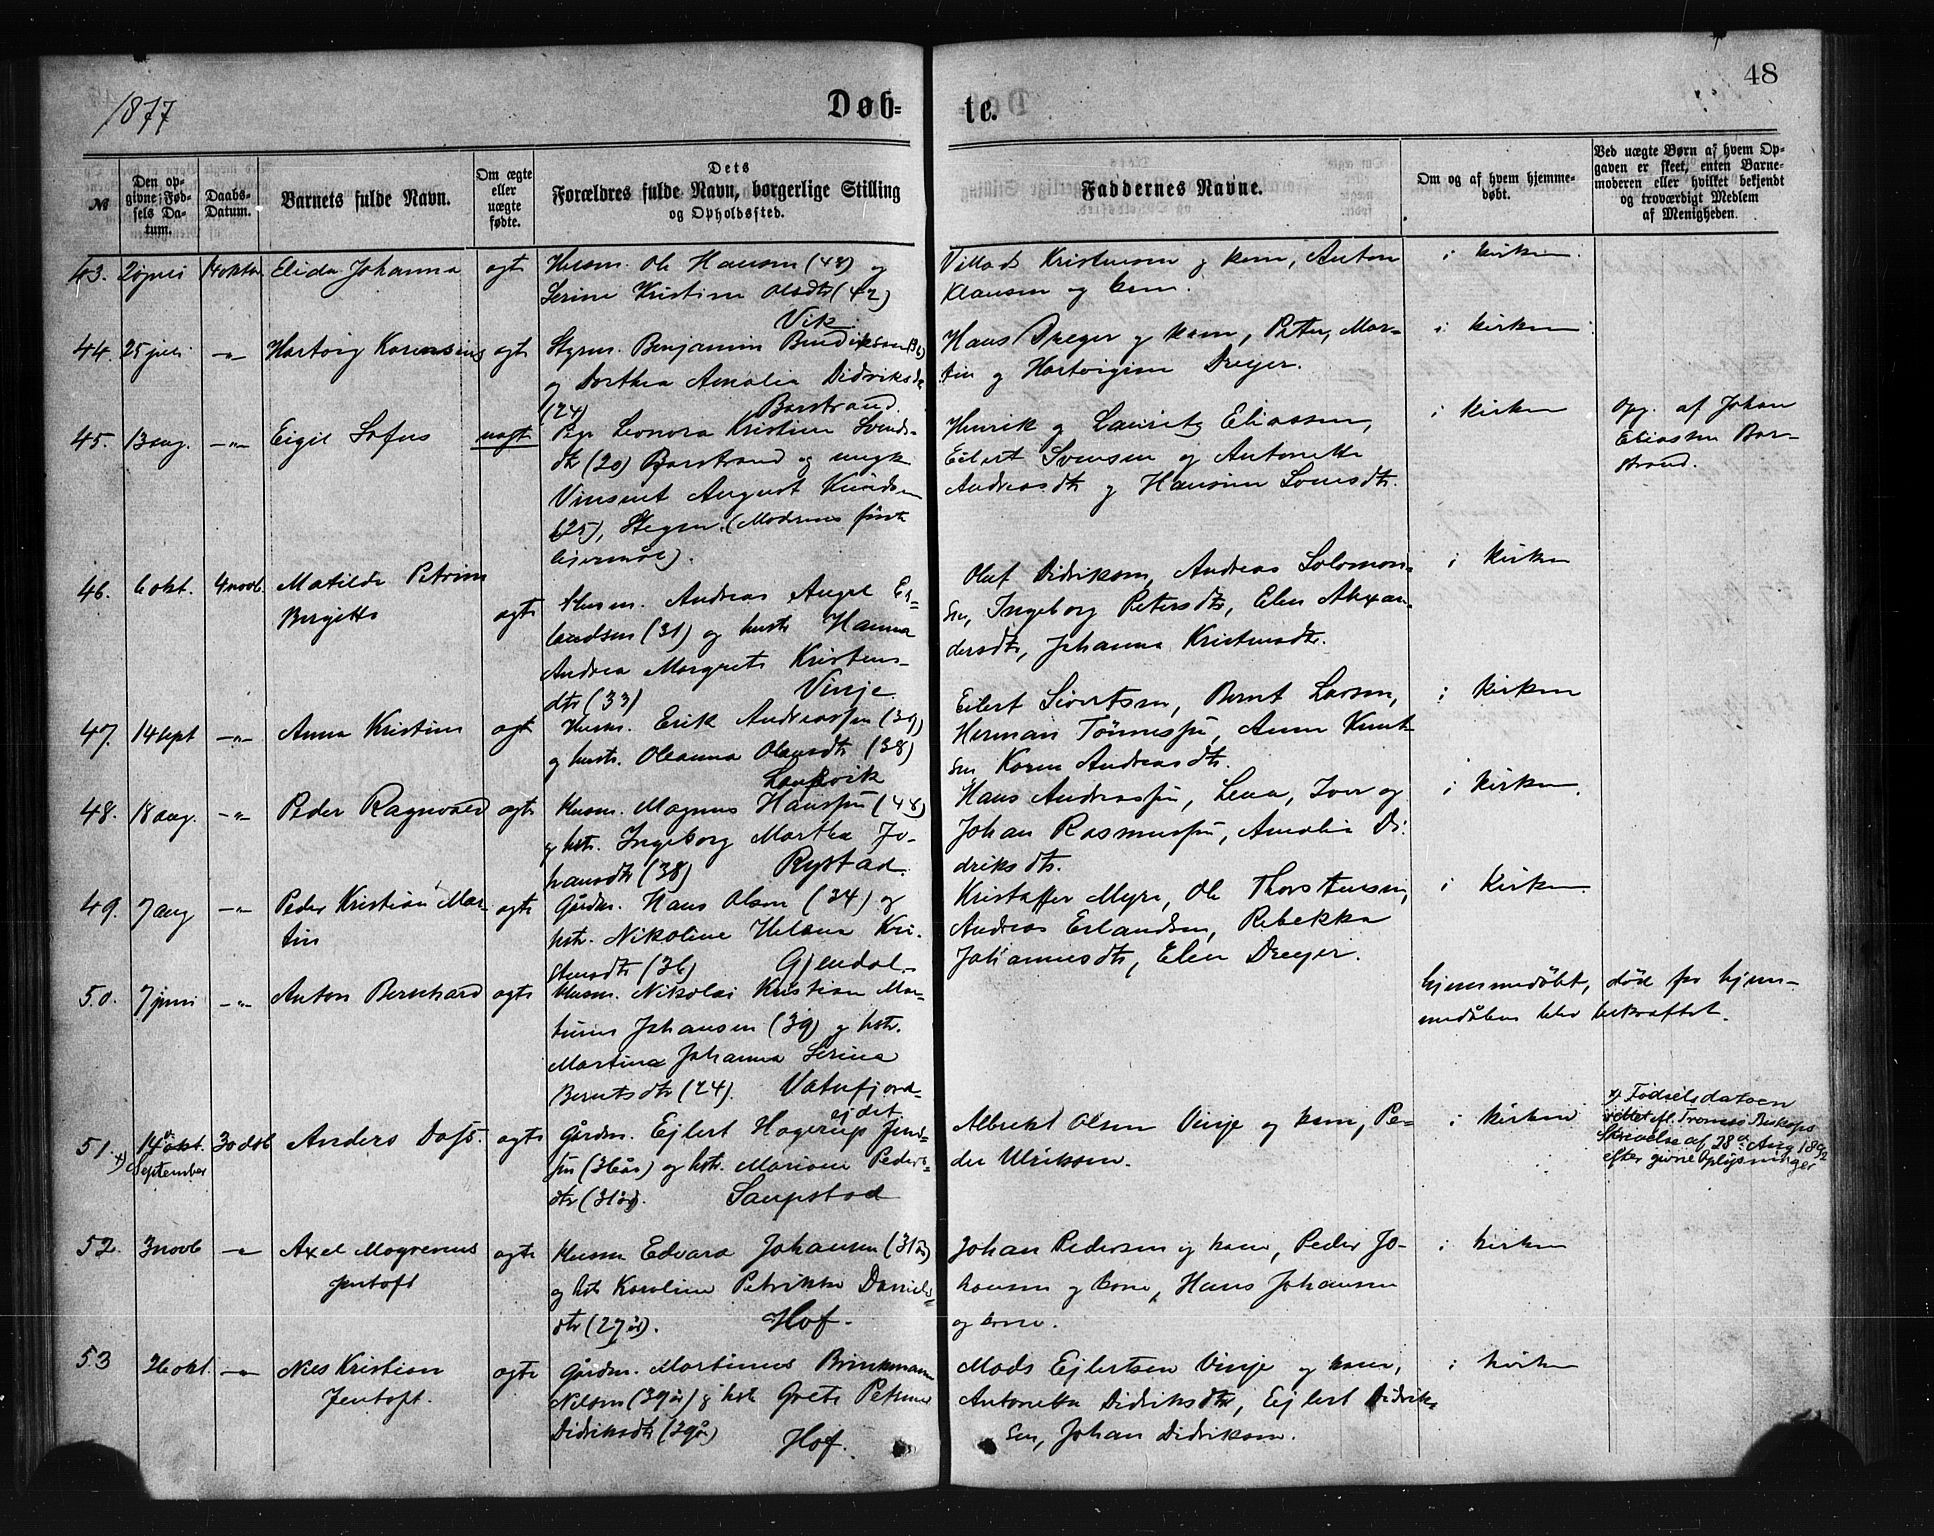 1877
Døb=
te.
48
№
Den op-
givne Fød-
sels Da-
tum.
Daabs-
Datum.
Barnets fulde Navn.
Om ægte
eller
uægte
fødte.
Dets
Forældres fulde Navn, borgerlige Stilling
og Opholdssted.
Faddernes Navne.
Om og af hvem hjemme-
døbt.
Ved uægte Børn af hvem Op-
gaven er skeet, enten Barne-
moderen eller hvilket bekjendt
og troværdigt Medlem
af Menigheden.
43. 14 oktb Elida Johanna ægte
Husm. Ole Hansen (48) og
Serine Kristine Olsdtr (42)
Vik
Kristensen og kone, Anton
Klausen og kone.
i kirken.
44. 25 juli -„- Hartvig Korensius ægte
Styrm. Benjamin Bendiksen
og Dorthea Amalia Didriksdtr
(24) Borstrand
Hans Dreyer og kone, Peter, Mar-
tin og Hartvigine Dreyer.
i kirken
45. 13 aug. -„- Eigil Sofus uægt
Pige Leonora Kristine Svends-
dtr (20) Borstrand og ungk.
Vinsent August Knudsen
(25), (Modrens første
leiermål).
Henrik og Lauritz Eliassen,
Eilert Svensen og Antonette
Andreasdtr og
i kirken
Opg. af Johan
Eliassen Bor-
strand.
46. 6 okt. 4 novb. Matilde Petrine
Bergitte
ægte
Husm. Andreas Angel Er-
landsen (31) og hustr Hanna
Andrea Margrete Kristens-
dtr (33) Vinje
Oluf Didriksen, Andreas Solomon-
sen, Ingeborg Petersdtr, Elen Alexan-
dersdtr, Johanna Kristensdtr.
i kirken
47. 14 sept -„- Anna Kristine ægt
Husm. Erik Andreassen (39)
og hustr. Oleanna Olausdtr (38)
Laukvik
Eilert Sivertsen, Bernt Larsen,
Herman Tønnessen, Anne Knut-
sen Karen Andreasdtr.
i kirken
48. 18 aug. -„- Peder Ragnvald ægte
Husm. Magnus Hanssen (48)
og hstr. Ingeborg Martha Jo-
hansdtr (38) Rystad.
Hans Andreassen, Lena, Iver og
Johan Rasmussen, Amalia Di-
driksdtr.
i kirken.
49. 7 aug -„- Peder Kristian Mar-
tin
ægte
Gårdm. Hans Olsen (34) og
hstr. Nikoline Helena Kri-
stensdtr (36) Gjendal.
Kristaffer Myre, Ole Thorstensen,
Andreas Erlandsen, Rebekka
Johannesdtr, Elen Dreyer.
i kirken.
50. 7 juni -„- Anton Bernhard ægte
Husm. Nikolai Kristian Mar-
tinus Johansen (39) og hstr.
Martina Johanna Serina
Berntsdtr (24). Vatnfjord
hjemmedøbt, død før hjem-
medåben blev bekræftet.
51. x) 14de okt.
September
30 dcb. Anders Dass. ægte
ej det
Gårdm. Ejlert Hagerup Jens-
sen (36 år) og hstr. Mariane Peders-
dtr (31 år). Saupstad
Albrekt Olsen Vinje og kone, Pe-
der Ulriksen.
i kirken
x) Fødselsdatoen
rettet efl. Tromsø Biskops
Skrivelse af 28de Aug 1892
efter givne Oplysninger
52. 3 novb -„- Axel Magrenus
Jentoft
ægte
Husm Edvard Johansen (31 år)
og hstr Karoline Petrikke Daniels-
dtr (27 år). Hof.
Johan Pedersen og kone, Peder Jo-
hansen og kone, Hans Johansen
og kone.
i kirken
53 26 okt. -„- Nils Kristian
Jentoft.
ægte
Gårdm. Martinus Brinkmann
Nilsen (39 år) og hstr Grete Petrine
Didriksdtr (39 år) Hof.
Mads Ejlertsen Vinje og kone,
Antonetta Didriksdtr, Ejlert Didrik-
sen, Johan Didriksen.
i kirken